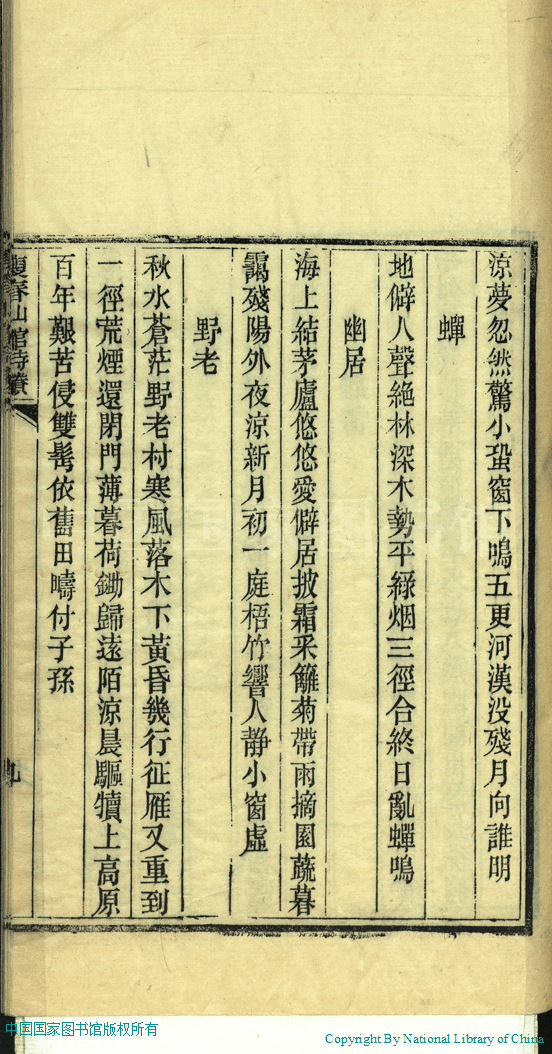 涼夢忽然驚小蛩窗下鳴五更河漢没殘月向誰明
蟬
地僻人聲絶林深木勢平綠烟三徑合終日亂蟬鳴
幽居
海上結茅廬悠悠愛僻居披霜采籬菊帶雨摘園蔬暮
靄殘陽外夜涼新月初一庭梧竹響人靜小窗虛
野老
秋水蒼茫野老村寒風落木下黃昏幾行征雁又重到
一徑荒煙還閉門薄暮荷鋤歸遠陌涼晨驅犢上高原
百年艱苦侵雙鬓依舊田疇付子孫
春山館詩
九
中国国家图书馆版权所有
Copyright By National Library of China